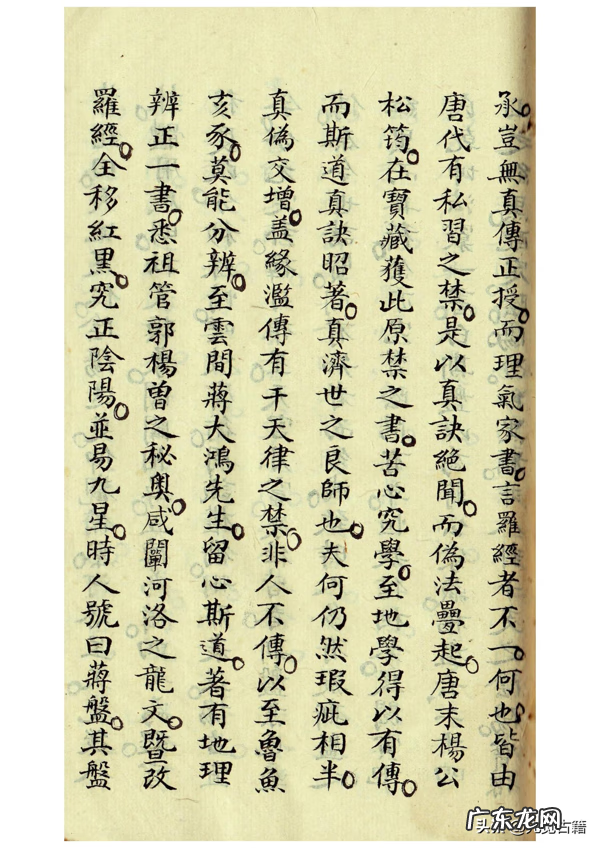 承豈無真傳正授。而理氣家書言羅經者不一。何也。皆由
唐代有私習之禁。是以真訣絕聞。而偽法疊起。唐末楊公
松筠。在寶藏獲此原禁之書。苦心究學。至地學得以有傳。
而斯道真訣昭著。真濟世之良師也。夫何仍然瑕疵相半。
真偽交增。盖緣濫傳有干天律之禁。非人不傳。以至魯魚
亥豕。莫能分辨。至雲間蔣大鴻先生。留心斯道。著有地理
辨正一書。悉祖管郭楊曾之秘奧。咸闡河洛之龍文。暨改
羅經。全移紅黑。究正陰陽。並易九星。時人號曰蔣盤。其盤
广东龙网